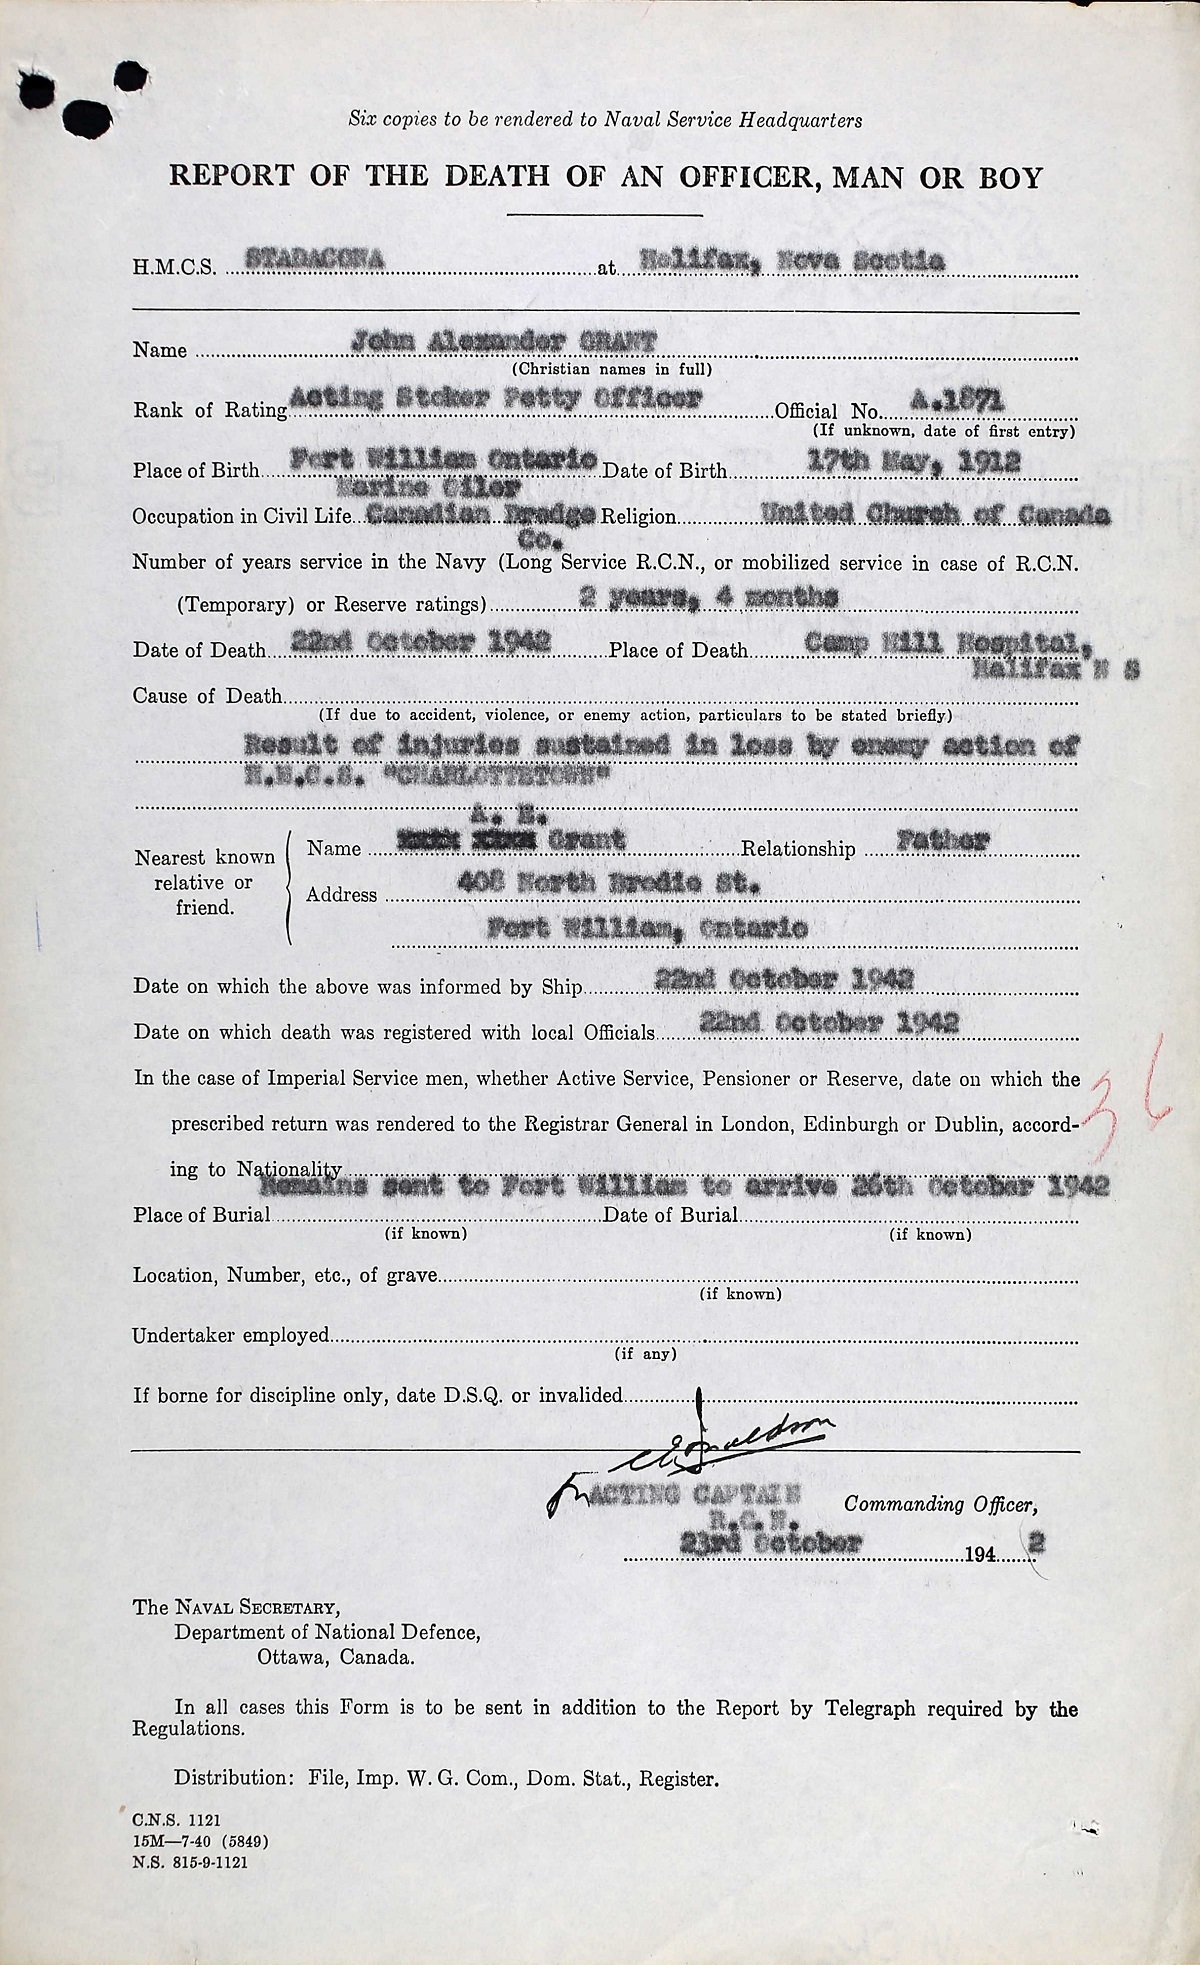 Six copies to be rendered to Naval Service Headquarters
REPORT OF THE DEATH OF AN OFFICER, MAN OR BOY
H.M.C.S. STADACONA at Halifax, Nova Scotia
Name John Alexander GRANT
(Christian names in full)
Rank of Rating Acting Stoker Petty Officer Official No. A.1871
(If unknown, date of first entry)
Place of Birth Fort William Ontario Date of Birth 17th May, 1912
Marine Oiler
Occupation in Civil Life Canadian Dredge Religion United Church of Canada
Co.
Number of years service in the Navy (Long Service R.C.N., or mobilized service in case of R.C.N.
(Temporary) or Reserve ratings) 2 years, 4 months
Date of Death 22nd October 1942 Place of Death Camp Hill Hospital,
Halifax N S
Cause of Death
(If due to accident, violence, or enemy action, particulars to be stated briefly)
Result of injuries sustained in loss by enemy action of
H.M.C.S. "CHARLOTTETOWN"
Nearest known relative or friend.
Name Grant Relationship Father
Address 408 North Brodie St.
Fort William, Ontario
Date on which the above was informed by Ship 22nd October 1942
Date on which death was registered with local Officials 22nd October 1942
In the case of Imperial Service men, whether Active Service, Pensioner or Reserve, date on which the
prescribed return was rendered to the Registrar General in London, Edinburgh or Dublin, accord-
ing to Nationality
Remains sent to Fort William to arrive 26th October 1942
Place of Burial Date of Burial
(if known) (if known)
Location, Number, etc., of grave
(if known)
Undertaker employed
(if any)
If borne for discipline only, date D.S.Q. or invalided
for ACTING CAPTAIN Commanding Officer,
R.C.N.
23rd October 1942
The NAVAL SECRETARY,
Department of National Defence,
Ottawa, Canada.
In all cases this Form is to be sent in addition to the Report by Telegraph required by the
Regulations.
Distribution: File, Imp. W. G. Com., Dom. Stat., Register.
C.N.S. 1121
15M—7-40 (5849)
N.S. 815-9-1121
36